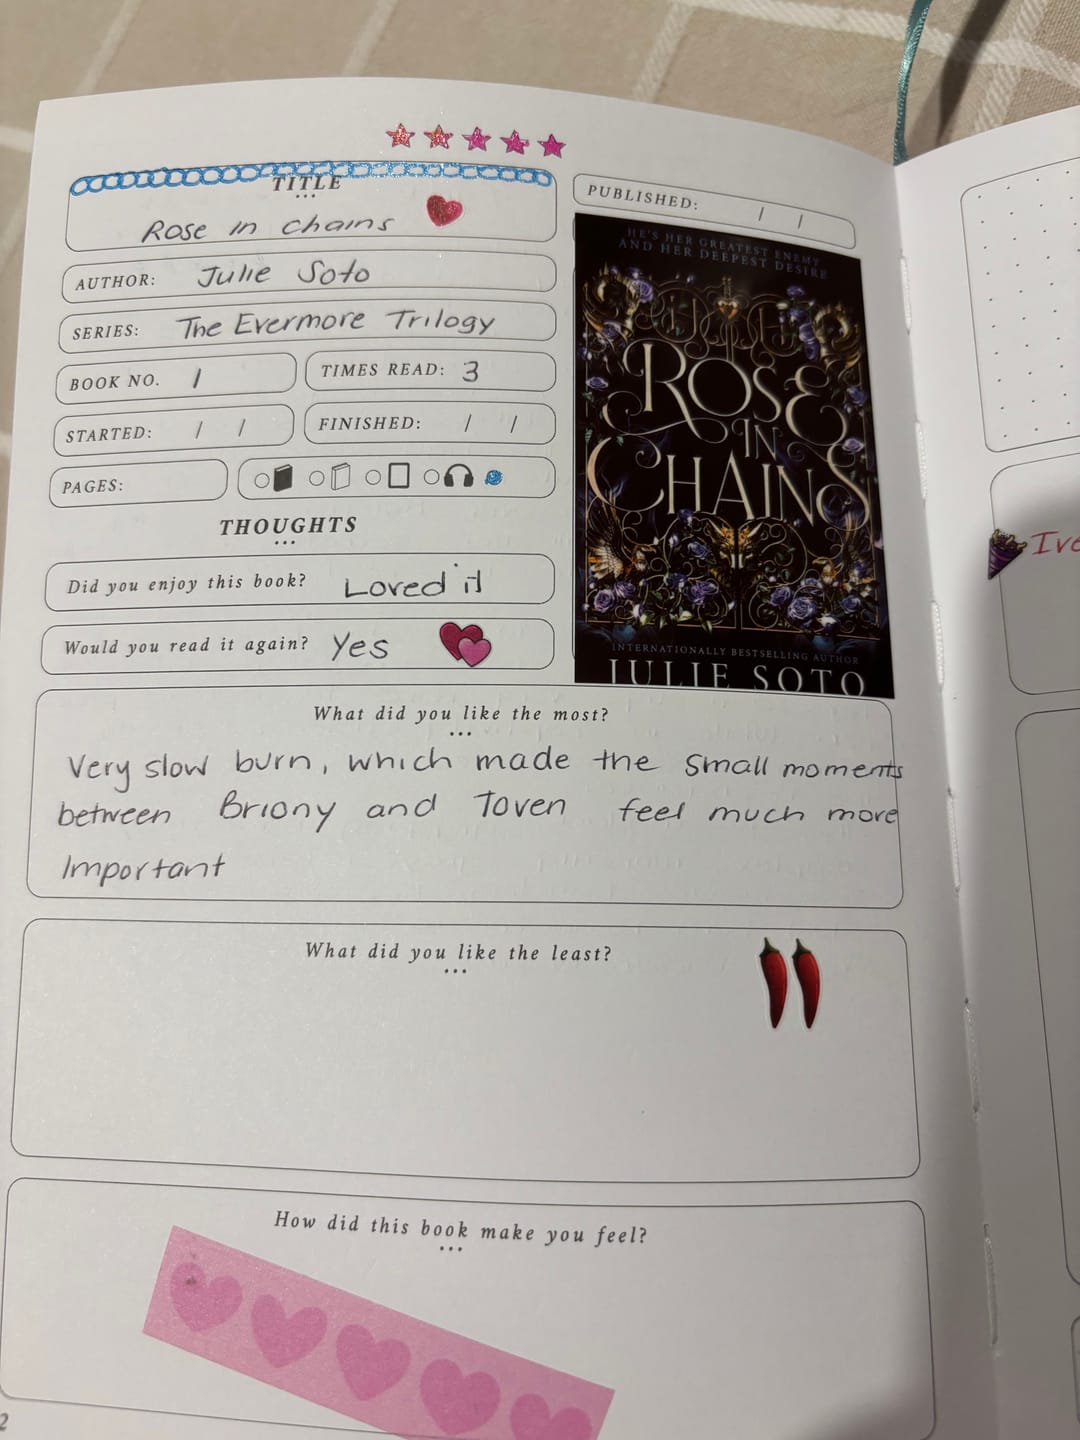 TITLE
Rose in chains
AUTHOR: Julie Soto
SERIES: The Evermore Trilogy
BOOK NO. 1
TIMES READ: 3
STARTED: / /
FINISHED: / /
PAGES:
PUBLISHED: / /
HE'S HER GREATEST ENEMY
AND HER DEEPEST DESIRE
ROSE
IN
CHAINS
INTERNATIONALLY BESTSELLING AUTHOR
JULIE SOTO
THOUGHTS
Did you enjoy this book? Loved it
Would you read it again? Yes
What did you like the most?
Very slow burn, which made the small moments
between Briony and Toven feel much more
Important
What did you like the least?
How did this book make you feel?
2